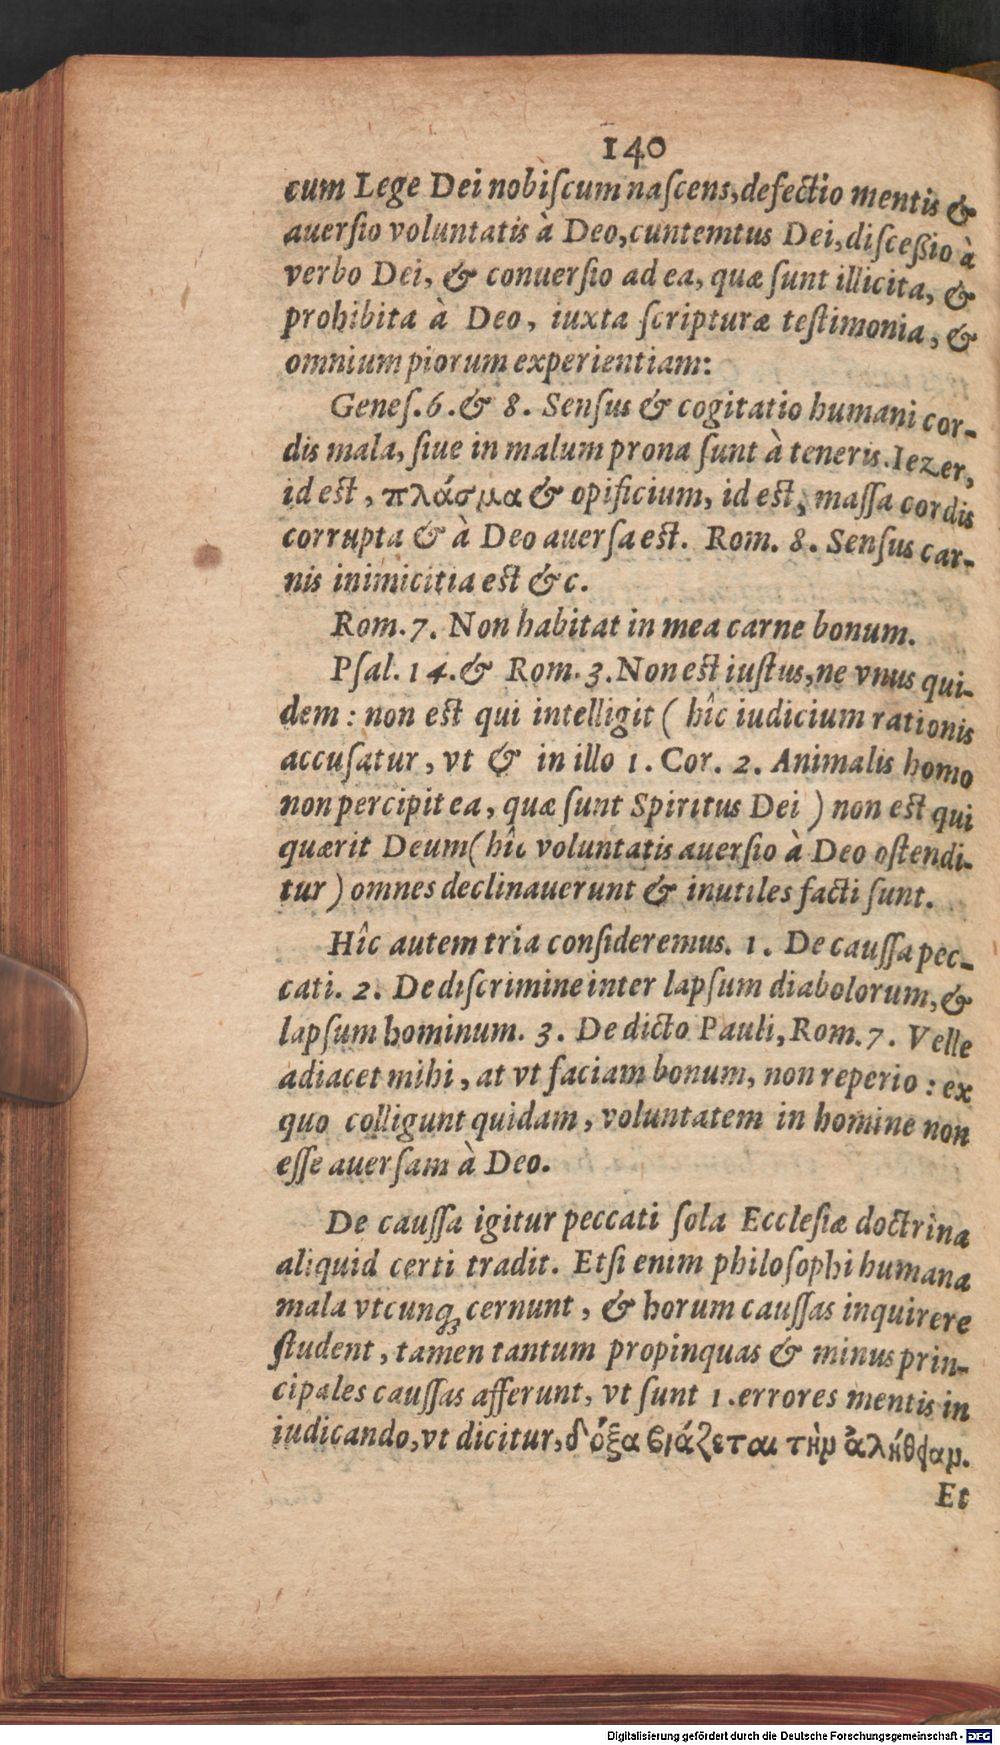 140
cum Lege Dei nobiſcum naſcens, defectio mentis &
auerſio voluntatis à Deo, cuntemtus Dei, diſceßio à
verbo Dei, & conuerſio ad ea, quæ ſunt illicita, &
prohibita à Deo, iuxta ſcripturæ teſtimonia, &
omnium piorum experientiam:
Geneſ. 6. & 8. Senſus & cogitatio humani cor-
dis mala, ſiue in malum prona ſunt à teneris. Iezer,
id eſt, πλάσμα & opificium, id eſt, maſſa cordis
corrupta & à Deo auerſa eſt. Rom. 8. Senſus car-
nis inimicitia eſt &c.
Rom. 7. Non habitat in mea carne bonum.
Pſal. 14. & Rom. 3. Non eſt iuſtus, ne vnus qui-
dem: non eſt qui intelligit (hîc iudicium rationis
accuſatur, vt & in illo 1. Cor. 2. Animalis homo
non percipit ea, quæ ſunt Spiritus Dei) non eſt qui
quærit Deum (hîc voluntatis auerſio à Deo oſtendi-
tur) omnes declinauerunt & inutiles facti ſunt.
Hîc autem tria conſideremus. 1. De cauſſa pec-
cati. 2. De diſcrimine inter lapſum diabolorum, &
lapſum hominum. 3. De dicto Pauli, Rom. 7. Velle
adiacet mihi, at vt faciam bonum, non reperio: ex
quo colligunt quidam, voluntatem in homine non
eſſe auerſam à Deo.
De cauſſa igitur peccati ſola Eccleſiæ doctrina
aliquid certi tradit. Etſi enim philoſophi humana
mala vtcunq; cernunt, & horum cauſſas inquirere
ſtudent, tamen tantum propinquas & minus prin-
cipales cauſſas afferunt, vt ſunt 1. errores mentis in
iudicando, vt dicitur, δόξα βιάζεται τὴν ἀλήθειαν.
Et
Digitalisierung gefördert durch die Deutsche Forschungsgemeinschaft - DFG